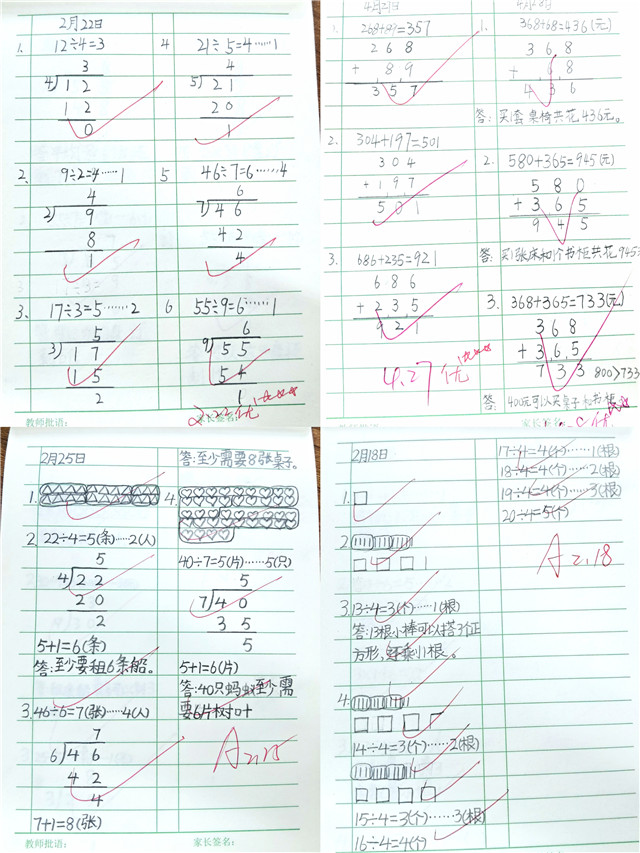 2月22日
1. 12÷4=3
3
4)12
12
0
2. 9÷2=4……1
4
2)9
8
1
3. 17÷3=5……2
5
3)17
15
2
4 21÷5=4……1
4
5)21
20
1
5 46÷7=6……4
6
7)46
42
4
6 55÷9=6……1
6
9)55
54
1
2.22优
教师批语:
家长签名:
4月21日
268+89=357
268
+ 89
357
2. 304+197=501
304
+197
501
3. 686+235=921
686
+235
921
4.27优
1. 368+68=436(元)
368
+ 68
436
答:买1套桌椅共花436元。
2. 580+365=945(元)
580
+365
945
答:买1张床和1个书柜共花945
3. 368+365=733(元)
368
+365
733
800>733
答:
2月25日
1.
2. 22÷4=5(条)……2(人)
5
4)22
20
2
5+1=6(条)
答:至少要租6条船。
3. 46÷6=7(张)……4(人)
7
6)46
42
4
7+1=8(张)
答:至少需要8张桌子。
4.
40÷7=5(片)……5(只)
5
7)40
35
5
5+1=6(片)
答:40只蚂蚁至少需
要6片树叶
A 2.25
教师批语:
家长签名:
2月18日
1.
2.
3. 13÷4=3(个)……1(根)
答:13根小棒可以搭3个正
方形,还剩1根。
4.
14÷4=3(个)……2(根)
15÷4=3(个)……3(根)
16÷4=4(个)
17÷4=4(个)……1(根)
18÷4=4(个)……2(根)
19÷4=4(个)……3(根)
20÷4=5(个)
A 2.18